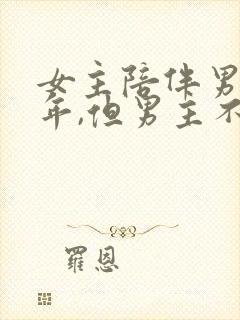 女主陪伴男
年,但男主不
羅恩